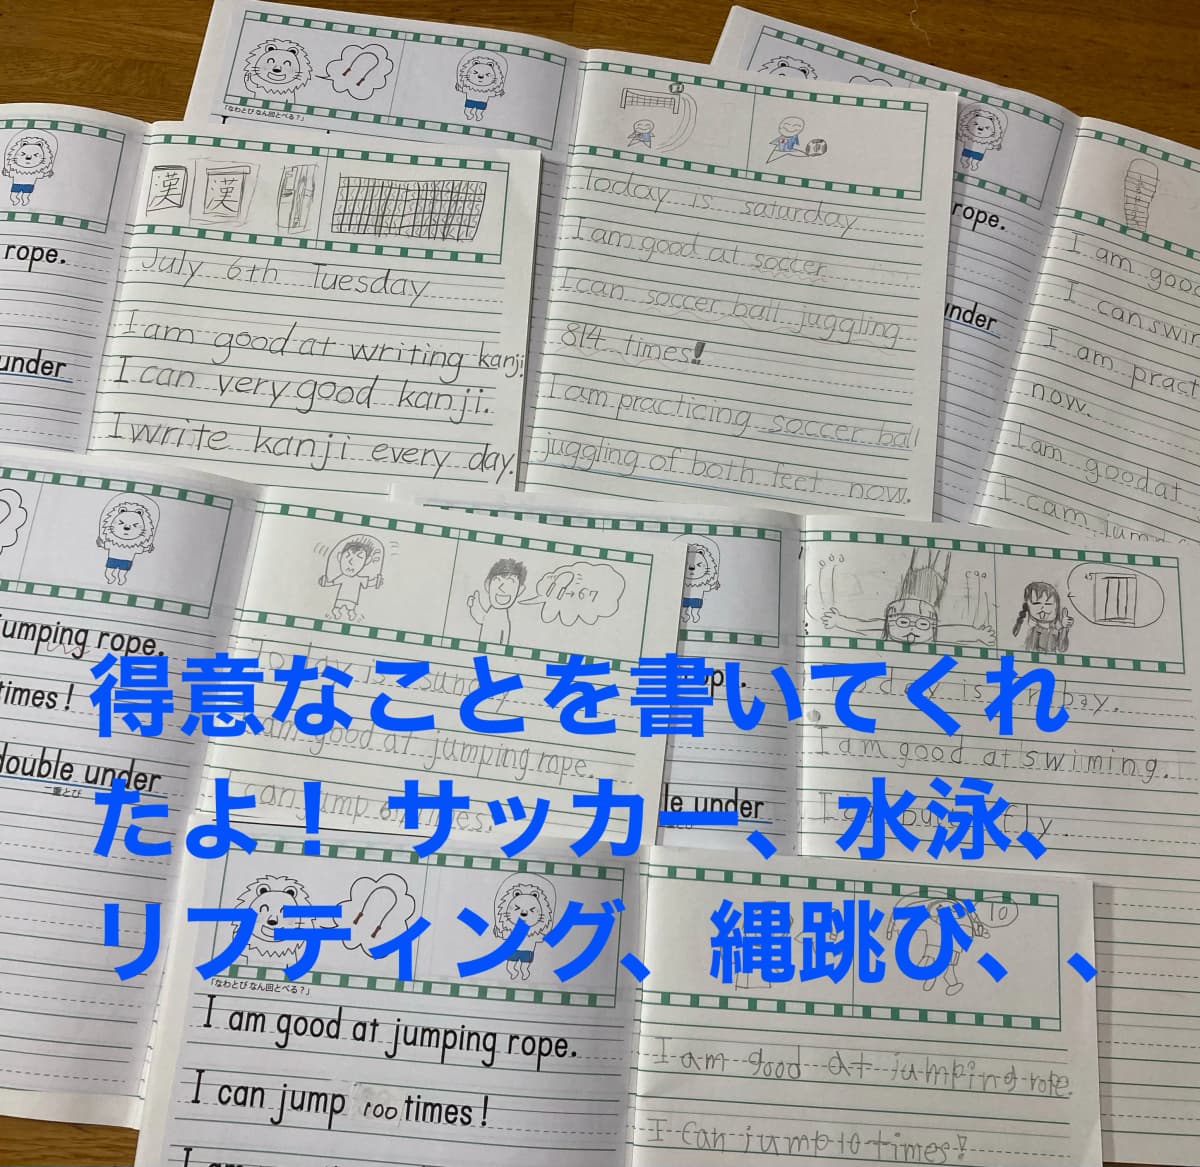 「なわとび なん回とべる？」
rope.
under
漢 漢
July 6th Tuesday
I am good at writing kanji
I can very good kanji.
I write kanji every day.
Today is saturday
I am good at soccer
I can soccer ball juggling
814 times!
I am practicing soccer ball
juggling of both feet now.
rope.
under
I am good
I can swim
I am pract
now.
I am good at
I can jump
jumping rope.
times!
double under
二重とび
→67
Today is sun
I am good at jumping rope.
can jump 67 times.
le under
day is
day.
I am good at swiming.
fly.
得意なことを書いてくれ
たよ！ サッカー、水泳、
リフティング、縄跳び、、
「なわとび なん回とべる？」
I am good at jumping rope.
I can jump 100 times!
10
I am good at jumping rope.
I can jump 10 times!